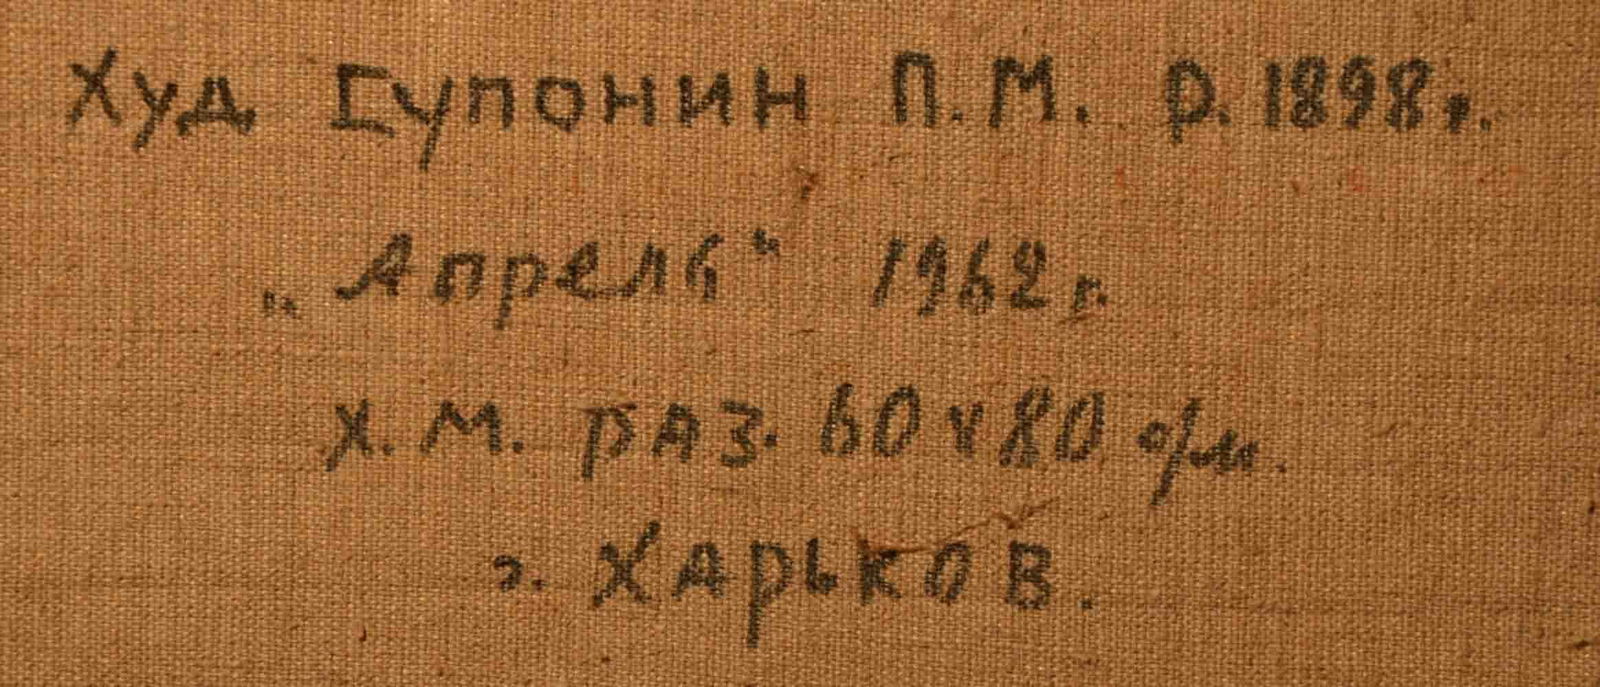 Худ Супонин П.М. р. 1898 г.
„Апрель“ 1962 г.
х.м. раз. 60 х 80 с/м.
г. Харьков.